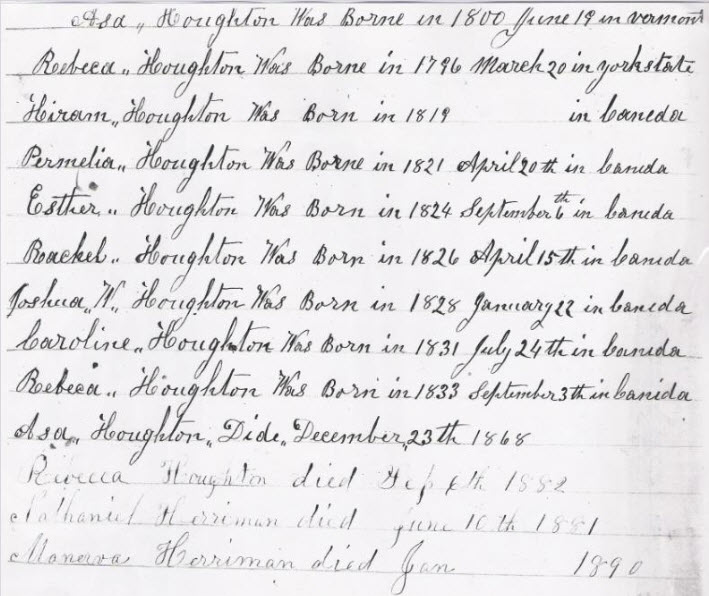 Asa,, Houghton Was Borne in 1800 June 19 in vermont
Rebeca,, Houghton Was Borne in 1796 March 20 in yorkstate
Hiram,, Houghton Was Born in 1819 in Caneda
Permelia,, Houghton Was Borne in 1821 April 20th in Canida
Esther,, Houghton Was Born in 1824 September 6th in Canida
Rachel,, Houghton Was Born in 1826 April 15th in Canida
Joshua,, W,, Houghton Was Born in 1828 January 22 in Canida
Caroline,, Houghton Was Born in 1831 July 24th in Canida
Rebeca,, Houghton Was Born in 1833 September 3th in Canida
Asa,, Houghton,, Dide,, December,, 23th 1868
Rebecca Houghton died Sep th 1882
Nathaniel Herriman died June 10th 1881
Manerva Herriman died Jan 1890